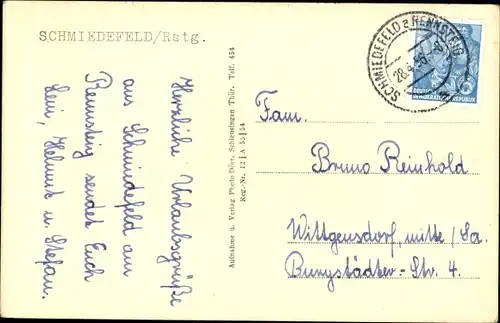 SCHMIEDEFELD/Rstg.
Herzliche Urlaubsgrüße
aus Schmiedefeld am
Rennsteig sendet Euch
Sein, Helmut u. Stefan.
Aufnahme u. Verlag Photo-Dörr, Schleusingen Thür. Telf. 454
Reg.-Nr. 12 | A 55 | 54
SCHMIEDEFELD a RENNSTEIG
28.4.56
DEUTSCHE
DEMOKRATISCHE REPUBLIK
10
Fam.
Bruno Reinhold
Wittgensdorf, mitte / Sa.
Burgstädter-Str. 4.